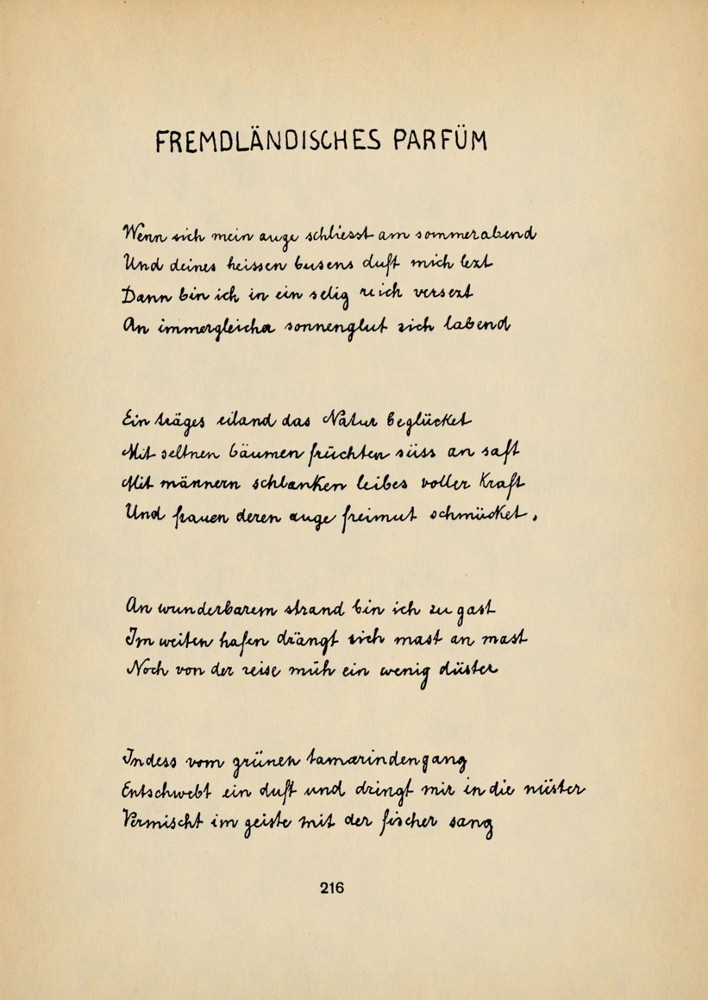 FREMDLÄNDISCHES PARFÜM
Wenn sich mein auge schliesst am sommerabend
Und deines heissen busens duft mich lezt
Dann bin ich in ein selig reich versezt
An immergleicher sonnenglut sich labend
Ein träges eiland das Natur beglücket
Mit seltnen bäumen früchten süss an saft
Mit männern schlanken leibes voller Kraft
Und frauen deren auge freimut schmücket.
An wunderbarem strand bin ich zu gast
Im weiten hafen drängt sich mast an mast
Noch von der reise müh ein wenig düster
Indess vom grünen tamarindengang
Entschwebt ein duft und dringt mir in die nüster
Vermischt im geiste mit der fischer sang
216